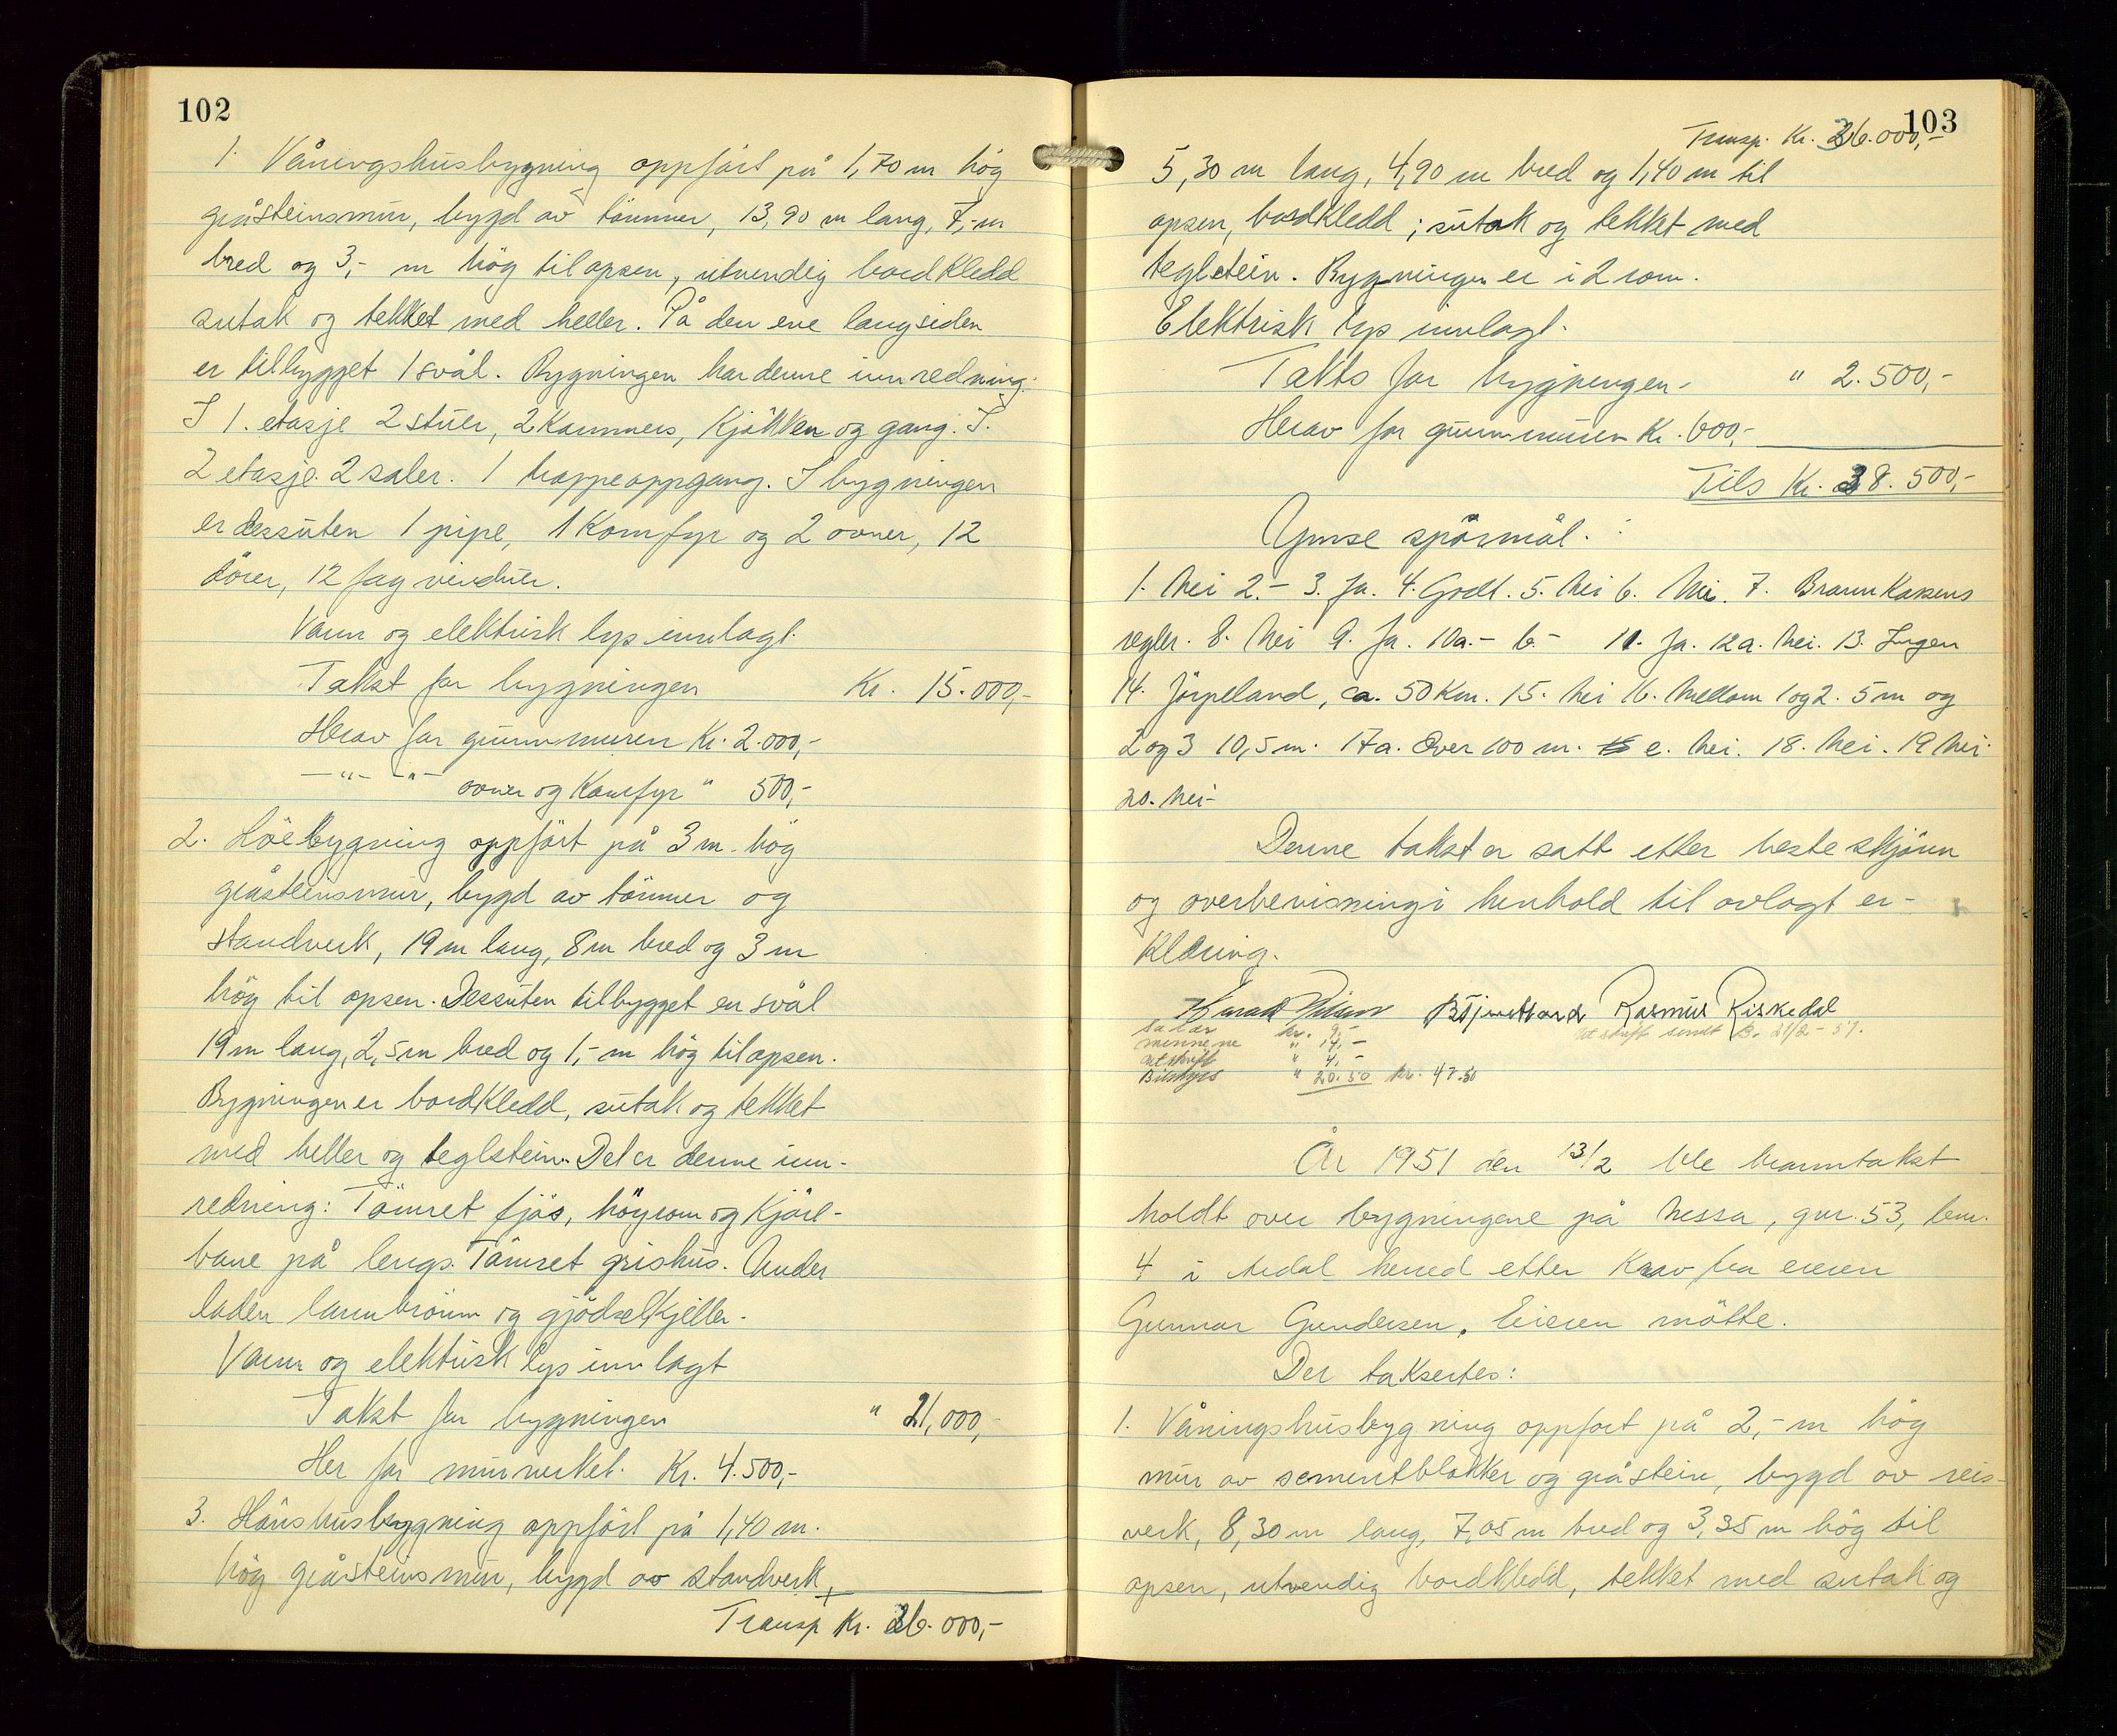 102
1. Våningshusbygning oppført på 1,70 m høg
gråsteinsmur, bygd av tømmer, 13,90 m lang, 7,- m
bred og 3,- m høg til opsen, utvendig bordkledd
sutak og tekket med heller. På den ene langsiden
er tilbygget 1 svål. Bygningen har denne innredning:
I 1. etasje 2 stuer, 2 kammers, kjøkken og gang. I.
2 etasje. 2 saler. 1 trappeoppgang. I bygningen
er dessuten 1 pipe, 1 komfyr og 2 ovner, 12
dører, 12 fag vinduer.
Vann og elektrisk lys innlagt.
Takst for bygningen Kr. 15.000,-
Herav for grunnmuren Kr. 2.000,-
-"- -"- ovner og komfyr " 500,-
2. Löebygning oppført på 3 m. høg
gråsteinsmur, bygd av tømmer og
standverk, 19 m lang, 8 m bred og 3 m
høg til opsen. Dessuten tilbygget en svål
19 m lang, 2,5 m bred og 1,- m høg til opsen.
Bygningen er bordkledd, sutak og tekket
med heller og teglstein. Det er denne inn-
redning: Tømret fjøs, høyrom og kjøre-
bane på lengs. Tømret grishus. Under
laden landbrønn og gjødselkjeller.
Vann og elektrisk lys innlagt
Takst for bygningen " 21,000,-
Her for murverket. Kr. 4.500,-
3. Hønshusbygning oppført på 1,40 m.
høg gråsteinsmur, bygd av standverk,
Transp Kr. 36.000,-
103
Transp. Kr. 36.000,-
5,30 m lang, 4,90 m bred og 1,40 m til
opsen, bordkledd; sutak og tekket med
teglstein. Bygningen er i 2 rom.
Elektrisk lys innlagt.
Takts for bygningen. " 2.500,-
Herav for grunnmuren Kr. 600,-
Tils Kr. 38.500,-
Ymse spørsmål:
1. Nei 2. - 3. Ja. 4. Godt. 5. Nei 6. Nei. 7. Brannkassens
regler. 8. Nei 9. Ja. 10a. - b. - 11. Ja. 12a. Nei. 13. Ingen
14. Jørpeland, ca. 50 Km. 15. Nei 16. Mellom 1 og 2. 5 m og
2 og 3 10,5 m. 17a. Over 100 m. e. Nei. 18. Nei. 19 Nei.
20. Nei-
Denne takst er satt etter beste skjønn
og overbevisning i henhold til avlagt er-
klæring.
Rasmus Riskedal
kr. 9,-
mennene " 14,-
utskrift " 4,- utskrift sendt
Bilskyss " 20.50 kr. 47.50
År 1951 den 13/2 ble branntakst
holdt over bygningene på Nessa, gnr. 53, bnr.
4 i Årdal herred etter krav fra eieren
Gunnar Gundersen. Eieren møtte.
Der taksertes:
1. Våningshusbygning oppført på 2,- m høg
mur av sementblokker og gråstein, bygd av reis-
verk, 8,30 m lang, 7,05 m bred og 3,35 m høg til
opsen, utvendig bordkledd, tekket med sutak og